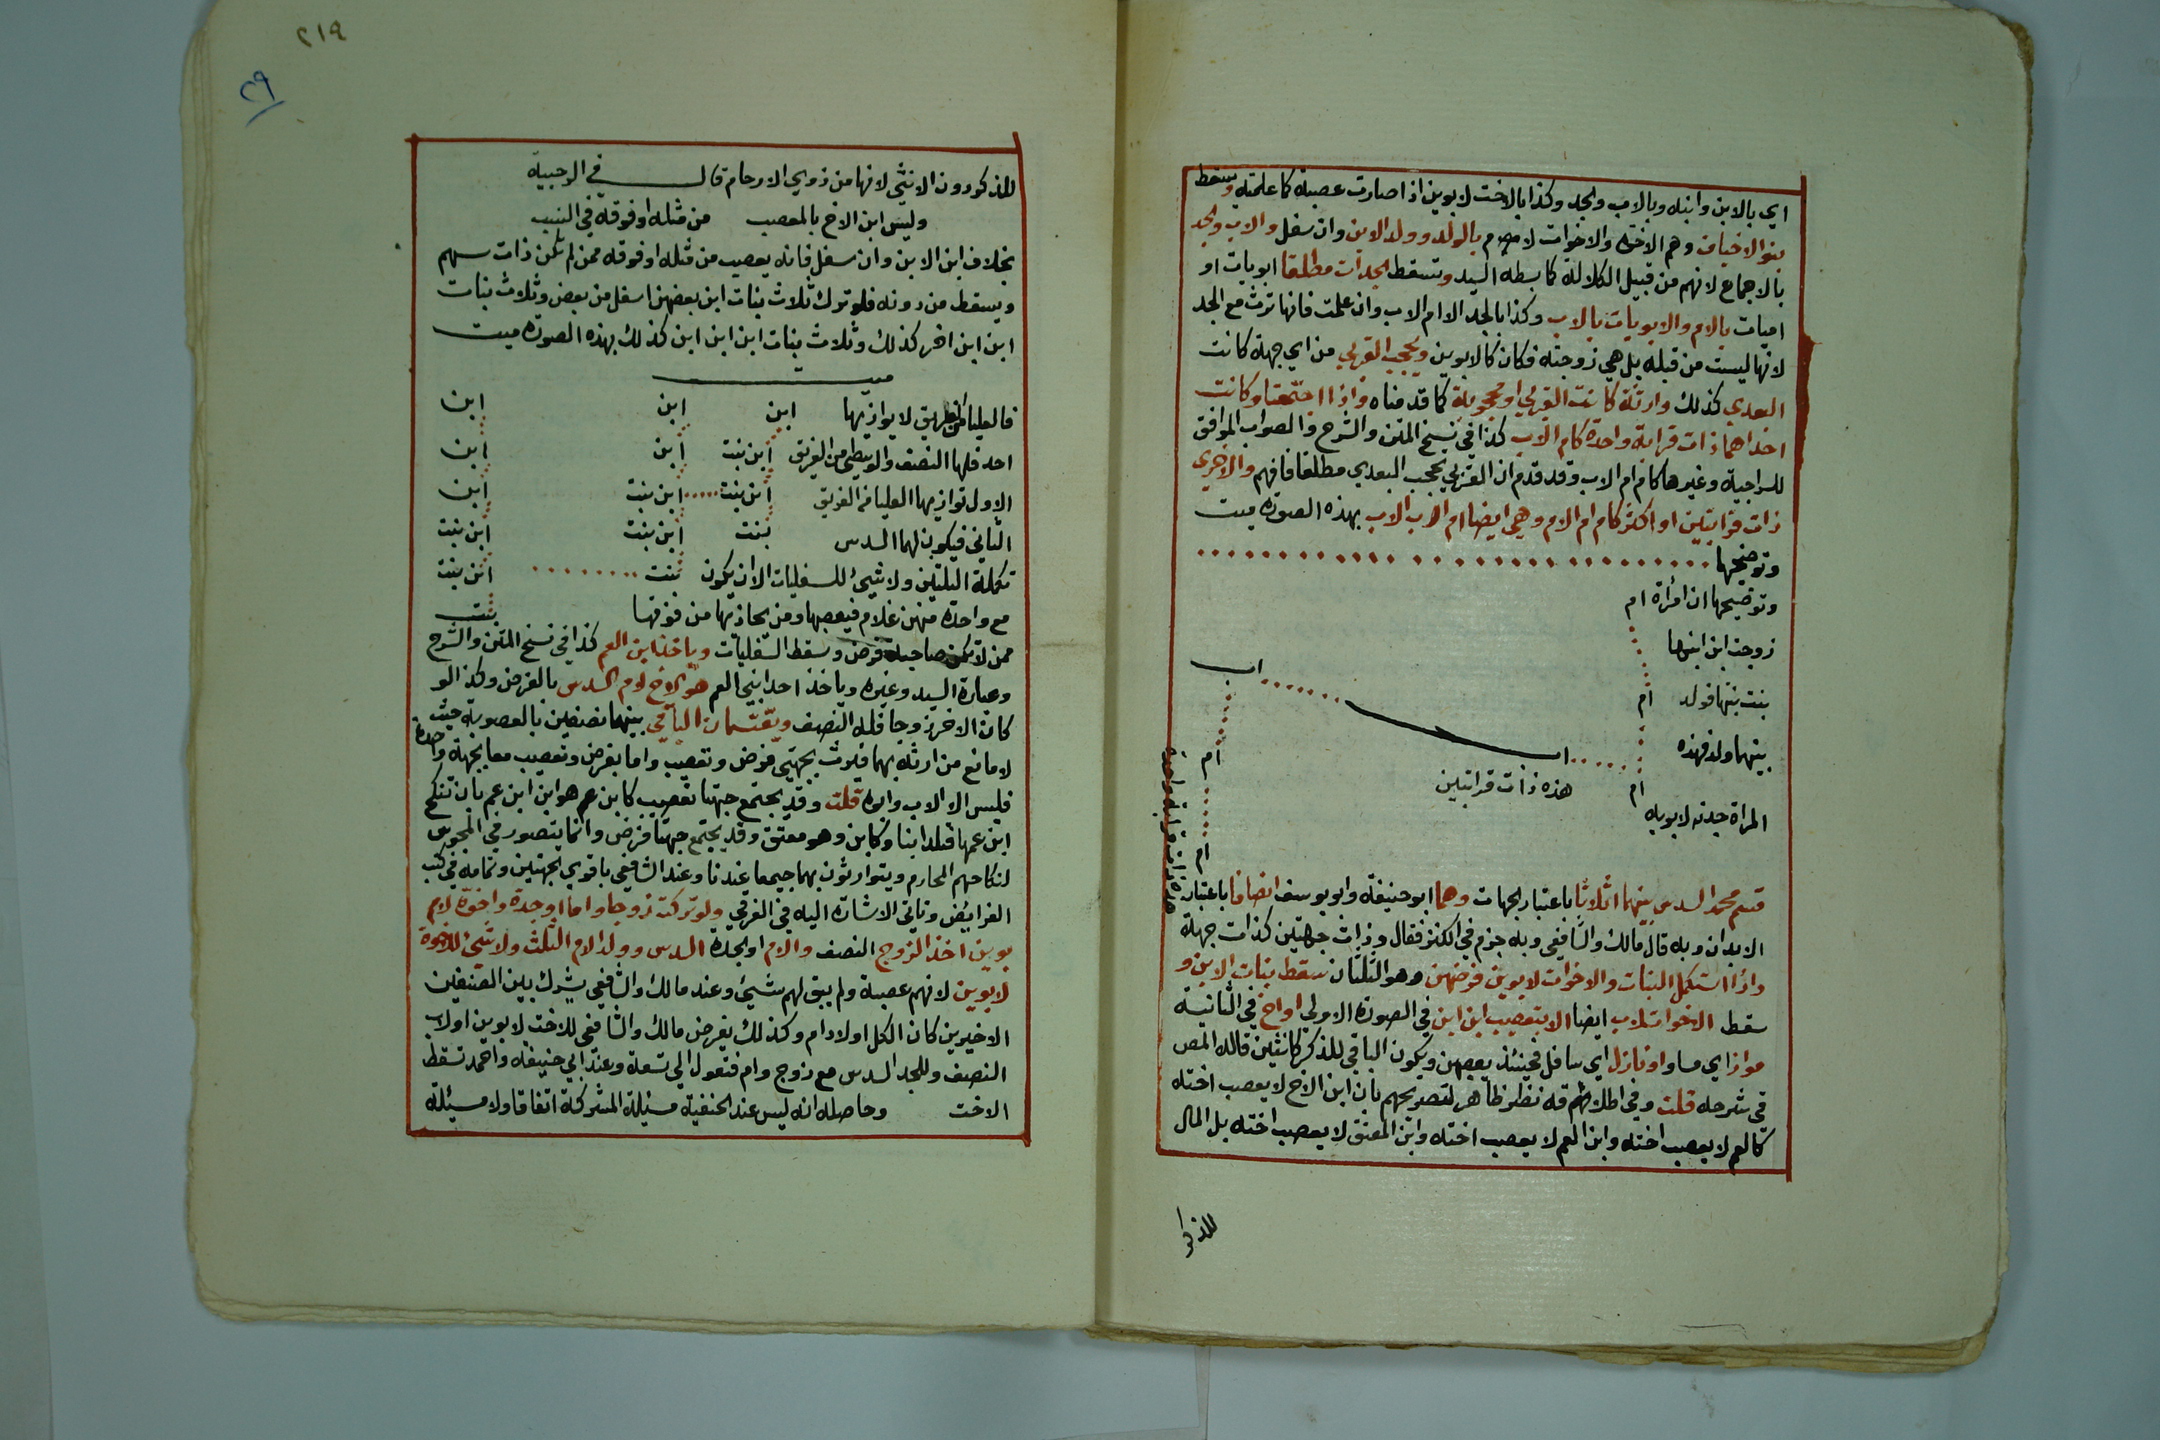 اي بالابن وابنه وبالاب والجد وكذا بالاخت لابوين اذا صارت عصبة كما علمته ويسقط
بنو الاخياف وهم الاخوة والاخوات لام بالولد وولد الابن وان سفل والاب والجد
بالاجماع لانهم من قبيل الكلالة كما بسطه السيد وتسقط الجدات مطلقا ابويات او
اميات بالام والابويات بالاب وكذا بالجد الا ام الاب وان علت فانها ترث مع الجد
لانها ليست من قبله بل هي زوجته فكان كالابوين ويحجب القربي من اي جهة كانت
البعدي كذلك وارثة كانت القربي او محجوبة كما قدمناه واذا اجتمعتا وكانت
احداهما ذات قرابة واحدة كام الاب كذا في نسخ المتن والشرح والصواب الموافق
للسراجية وغيرها كام ام الاب وقد قدم ان القربي تحجب البعدي مطلقا فافهم والاخري
ذات قرابتين او اكثر كام ام الام وهي ايضا ام اب الاب بهذه الصورة ميت
وتوضيحها
وتوضيحها ان امرأة ام
زوجت ابن ابنها
اب
بنت بنتها فولد ام
بينهما ولد فهذه اب ام
هذه ذات قرابتين ام
المراة جدته لابويه
ام
هذه ذات قرابة واحدة
قسم محمد السدس بينهما اثلاثا باعتبار الجهات وهما ابو حنيفة وابو يوسف انصافا باعتبار
الابدان وبه قال مالك والشافعي وبه جزم في الكنز فقال وذات جهتين كذات جهة
واذا استكمل البنات والاخوات لابوين فرضهن وهو الثلثان سقط بنات الابن و
سقط الاخوات لاب ايضا الا بتعصيب ابن ابن في الصورة الاولي او اخ في الثانية
مواز اي مساو او نازل اي سافل فحينئذ يعصبهن ويكون الباقي للذكر كانثيين قاله المص
في شرحه قلت وفي اطلاقه نظر ظاهر لتصريحهم بان ابن الاخ لا يعصب اخته
كالعم لا يعصب اخته وابن العم لا يعصب اخته وابن المعتق لا يعصب اخته بل المال
للذكر
٢١٩
٢٩
للذكر دون الانثي لانها من ذوي الارحام قال في الرحبية
وليس ابن الاخ بالمعصب من مثله او فوقه في النسب
بخلاف ابن الابن وان سفل فانه يعصب من مثله او فوقه ممن لم تكن ذات سهم
ويسقط من دونه فلو ترك ثلاث بنات ابن بعضهن اسفل من بعض وثلاث بنات
ابن ابن اخر كذلك وثلاث بنات ابن ابن ابن كذلك بهذه الصورة ميت
ميت
فالعليا من الفريق لا يوازيها ابن ابن ابن
احد فلها النصف والوسطي من الفريق ابن بنت ابن ابن
الاول توازيها العليا من الفريق ابن بنت ابن بنت ابن
الثاني فيكون لهما السدس بنت ابن بنت ابن بنت
تكملة الثلثين ولا شيئ للسفليات الا ان يكون بنت ابن بنت
مع واحدة منهن غلام فيعصبها ومن يحاذيها من فوقها بنت
ممن لا تكون صاحبة فرض وسقط السفليات وياخذ ابن العم كذا في نسخ المتن والشرح
وعبارة السيد وغيره وياخذ احد ابني العم هو الاخ لام السدس بالفرض وكذا لو
كان الاخر زوجا فله النصف ويقتسمان الباقي بينهما نصفين بالعصوبة حيث
لا مانع من ارثه بهما فيرث بجهتي فرض وتعصيب واما بفرض وتعصيب معا بجهة واحدة
فليس الا الاب وابوه قلت وقد يجتمع جهتا تعصيب كابن عم هو ابن ابن عم بان تنكح
ابن عمها فتلد ابنا وكابن وهو معتق وقد يجتمع جهتا فرض وانما يتصور في المجوس
لنكاحهم المحارم ويتوارثون بهما جميعا عندنا وعند الشافعي باقوي الجهتين وتمامه في كتب
الفرايض وتاتي الاشارة اليه في الغرقي ولو تركت زوجا واما او جدة واخوة لام
بوين اخذ الزوج النصف والام او الجدة السدس وولد الام الثلث ولا شيئ للاخوة
لابوين لانهم عصبة ولم يبق لهم شيئ وعند مالك والشافعي يشرك بين الصنفين
الاخيرين كان الكل اولاد ام وكذلك يفرض مالك والشافعي للاخت لابوين او لاب
النصف وللجد السدس مع زوج وام فتعول الي تسعة وعند ابي حنيفة واحمد تسقط
الاخت وحاصله انه ليس عند الحنفية مسئلة المشركة اتفاقا ولا مسئلة